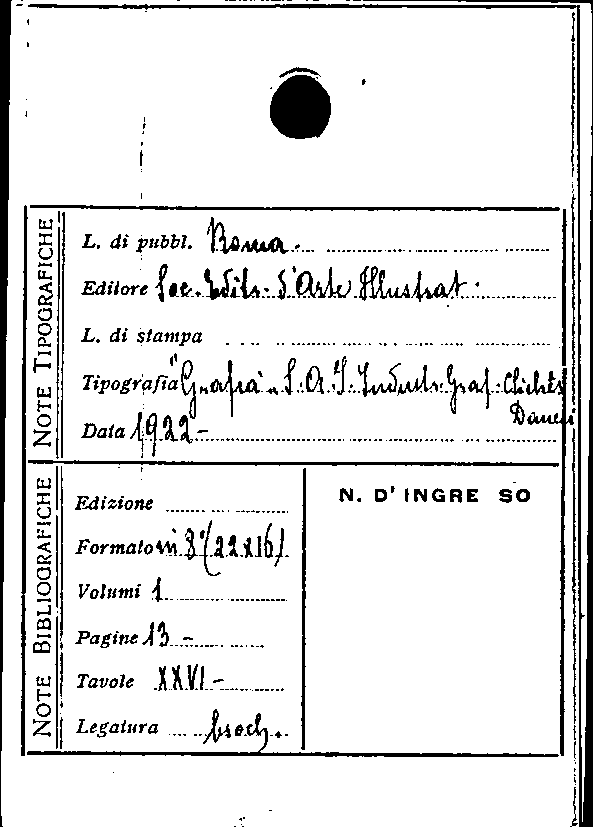 NOTE TIPOGRAFICHE
L. di pubbl. Roma.
Editore Soc. Edit. d'Arte Illustrat.
L. di stampa
Tipografia "Grafia" S.A.I. Industr. Graf. Clichés
Danesi
Data 1922-
NOTE BIBLIOGRAFICHE
Edizione
Formato in 8° (22x16)
Volumi 1
Pagine 13 -
Tavole XXVI -
Legatura broch.
N. D' INGRE SO